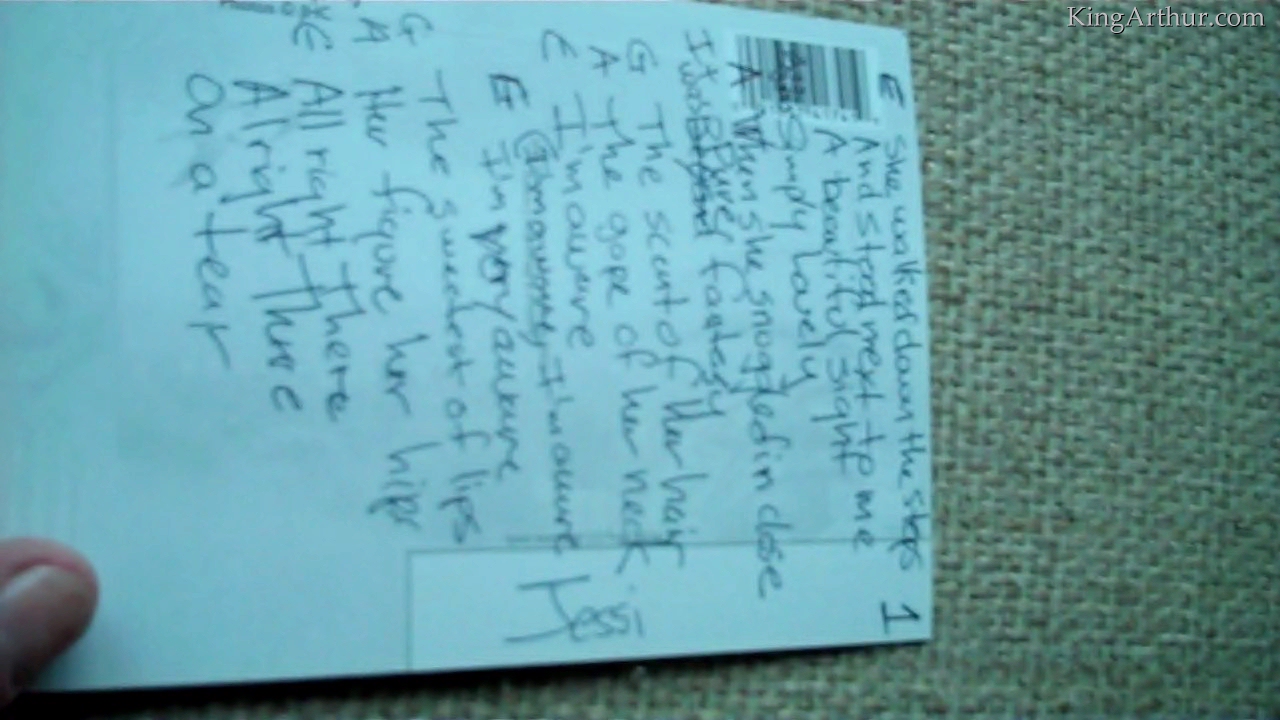 KingArthur.com
1
E She walked down the steps
And stood next to me
A beautiful sight
Simply lovely
A When she snuggled in close
It was Pure fantesy
G The scent of her hair
A The gape of her neck.
E I'm aware
I'm aware
E I'm very aware
G The sweetest of lips
A Her figure her hips
E All right There
Alright There
On a tear
Jessi